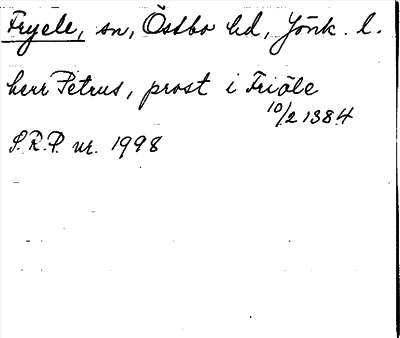 Fryele, sn, Östbo hd, Jönk. l.
herr Petrus, prost i Friöle
10/2 1384
S.R.P. nr. 1998